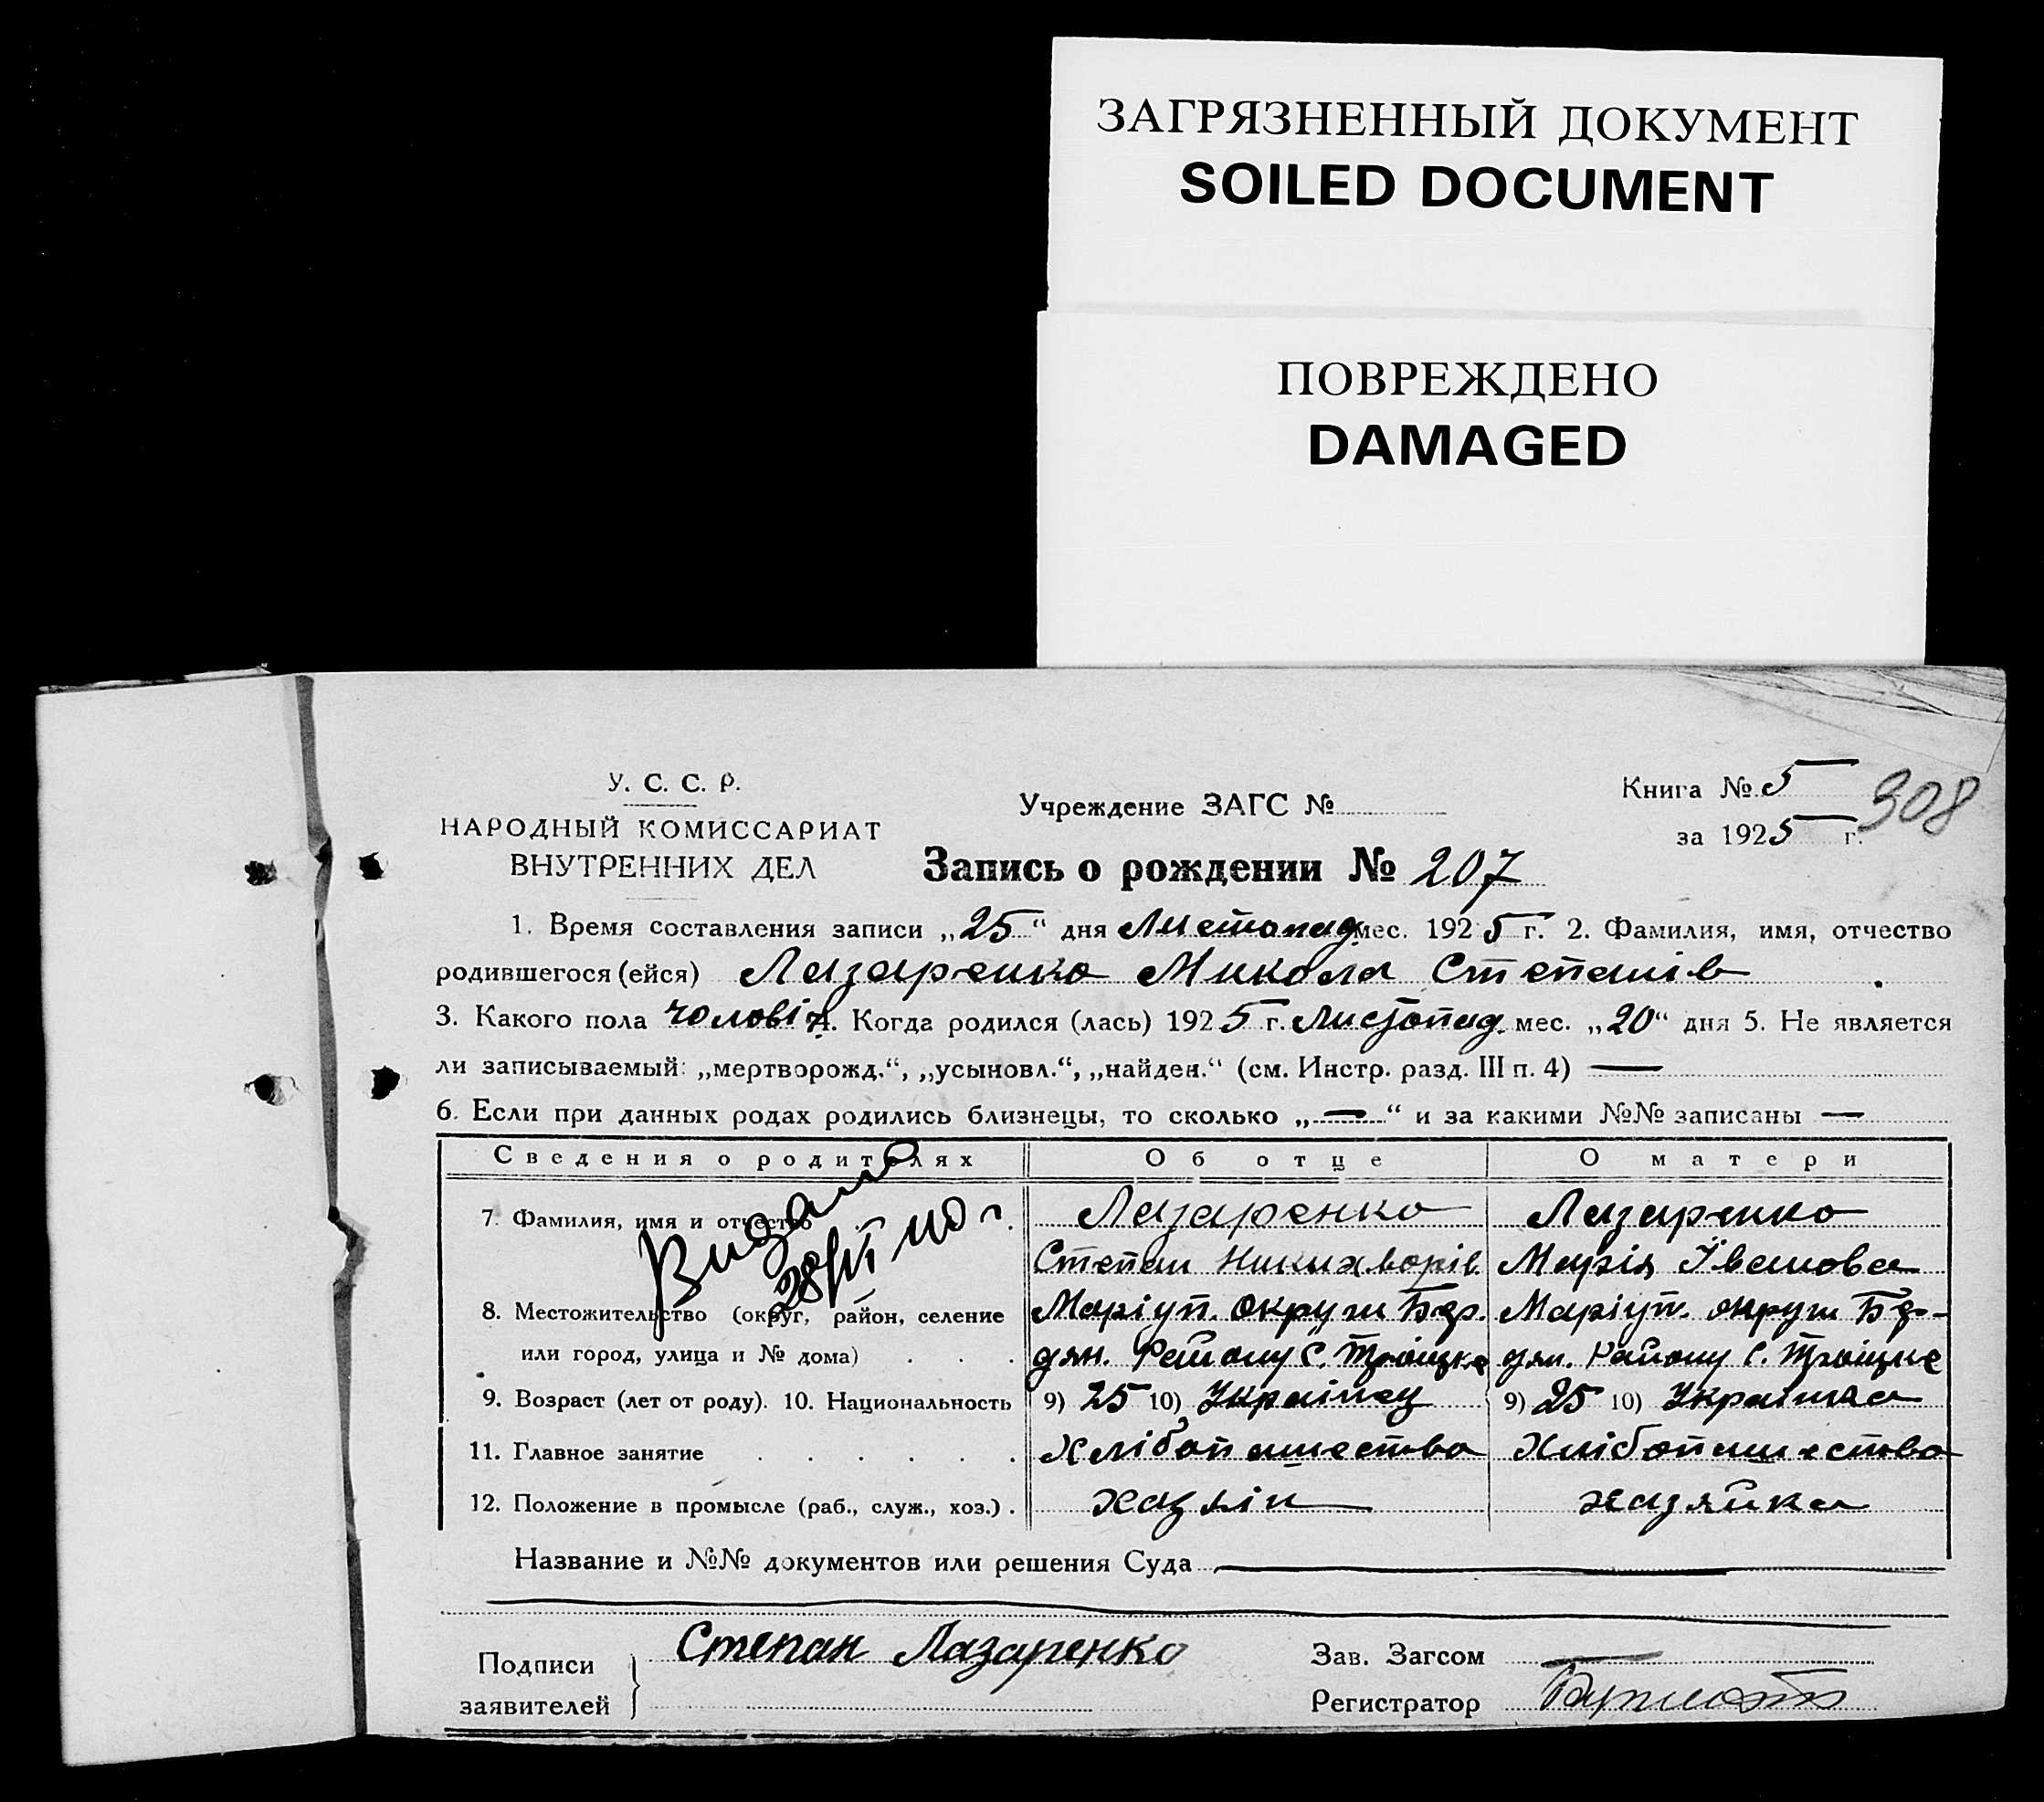 ЗАГРЯЗНЕННЫЙ ДОКУМЕНТ
SOILED DOCUMENT
ПОВРЕЖДЕНО
DAMAGED
У. С. С. Р.
НАРОДНЫЙ КОМИССАРИАТ
ВНУТРЕННИХ ДЕЛ
Учреждение ЗАГС №
Книга № 5
за 1925 г.
308
Запись о рождении № 207
1. Время составления записи „25“ дня Листопад мес. 1925 г. 2. Фамилия, имя, отчество
родившегося (ейся) Лазаренко Микола Степанів
3. Какого пола чолові 4. Когда родился (лась) 1925 г. Листопад мес. „20“ дня 5. Не является
ли записываемый: „мертворожд.“, „усыновл.“, „найден.“ (см. Инстр. разд. III п. 4) —
6. Если при данных родах родились близнецы, то сколько „—“ и за какими №№ записаны —
Сведения о родителях Об отце О матери
7. Фамилия, имя и отчество Лазаренко Лазаренко
Степан Никихворів Марія Івановa
8. Местожительство (округ, район, селение Маріуп. округи Бер. Маріуп. округи Бер-
или город, улица и № дома) дян. Району С. Троіцке дян. Району С. Троіцке
9. Возраст (лет от роду). 10. Национальность 9) 25 10) Украінец 9) 25 10) Украінка
11. Главное занятие Хлібопашество Хлібопашество
12. Положение в промысле (раб., служ., хоз.) хазяін хазяйка
Видано
40 г.
Название и №№ документов или решения Суда
Подписи заявителей Степан Лазаренко
Зав. Загсом
Регистратор